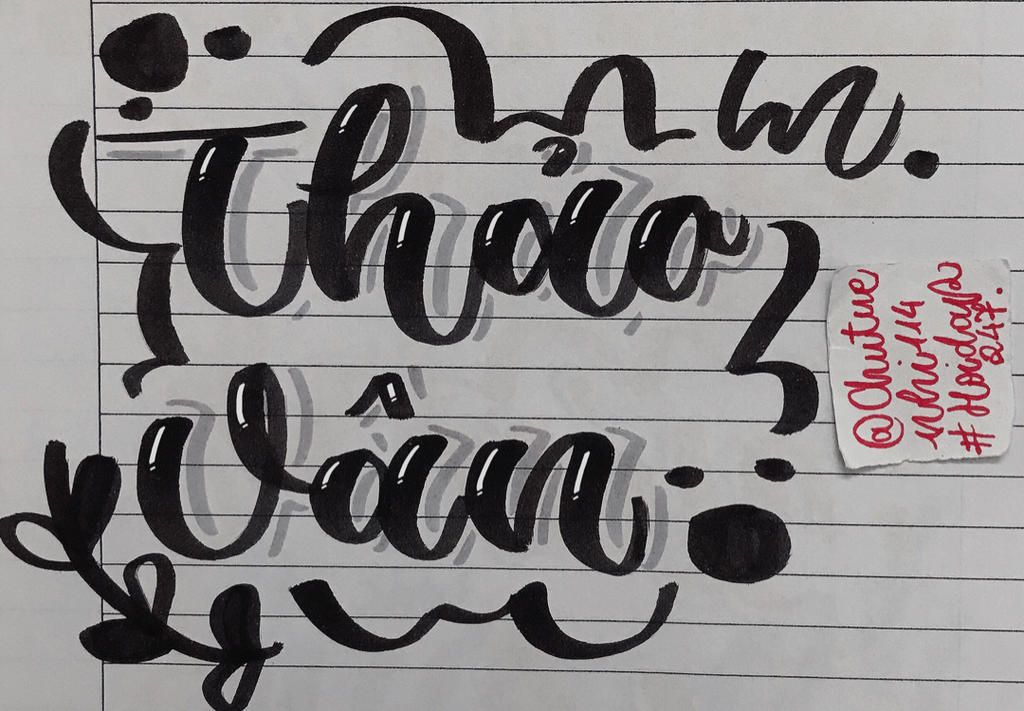 Thảo
Vân
@Chutue
nhi1114
#Hoidap
247.